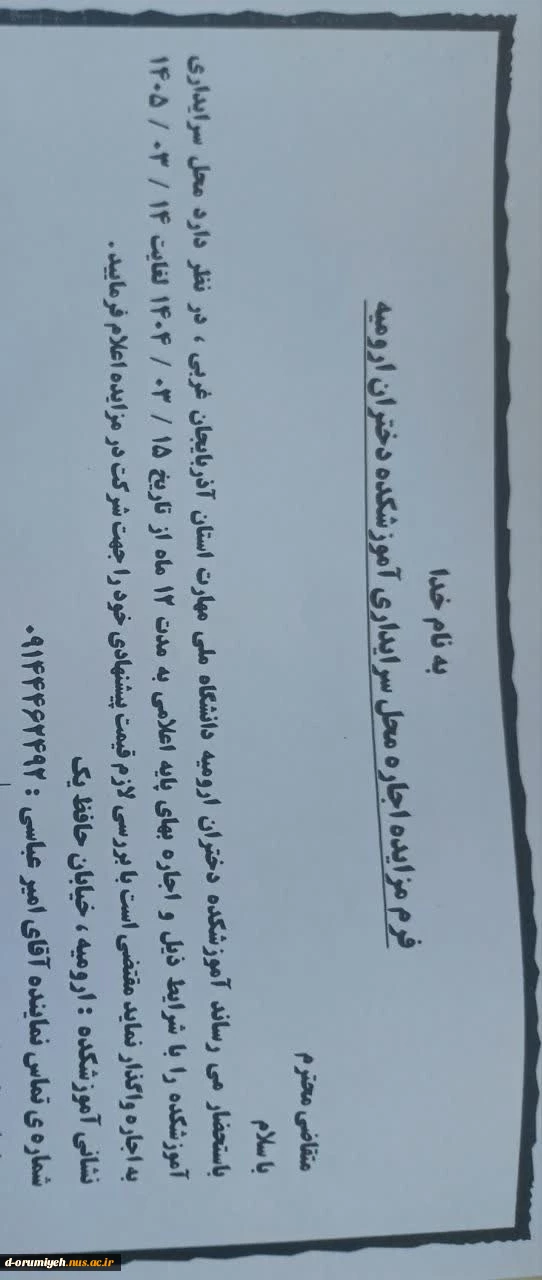 به نام خدا
فرم مزایده اجاره محل سرایداری آموزشکده دختران ارومیه
متقاضی محترم
باسلام
باستحضار می رساند آموزشکده دختران ارومیه دانشگاه ملی مهارت استان آذربایجان غربی ، در نظر دارد محل سرایداری
آموزشکده را با شرایط ذیل و اجاره بهای پایه اعلامی به مدت ۱۲ ماه از تاریخ ۱۵ / ۰۳ / ۱۴۰۴ لغایت ۱۴ / ۰۳ / ۱۴۰۵
به اجاره واگذار نماید مقتضی است با بررسی لازم قیمت پیشنهادی خود را جهت شرکت در مزایده اعلام فرمایید.
نشانی آموزشکده : ارومیه ، خیابان حافظ یک
شماره ی تماس نماینده آقای امیر عباسی : ۰۹۱۴۴۴۶۲۴۹۲
d-orumiyeh.nus.ac.ir